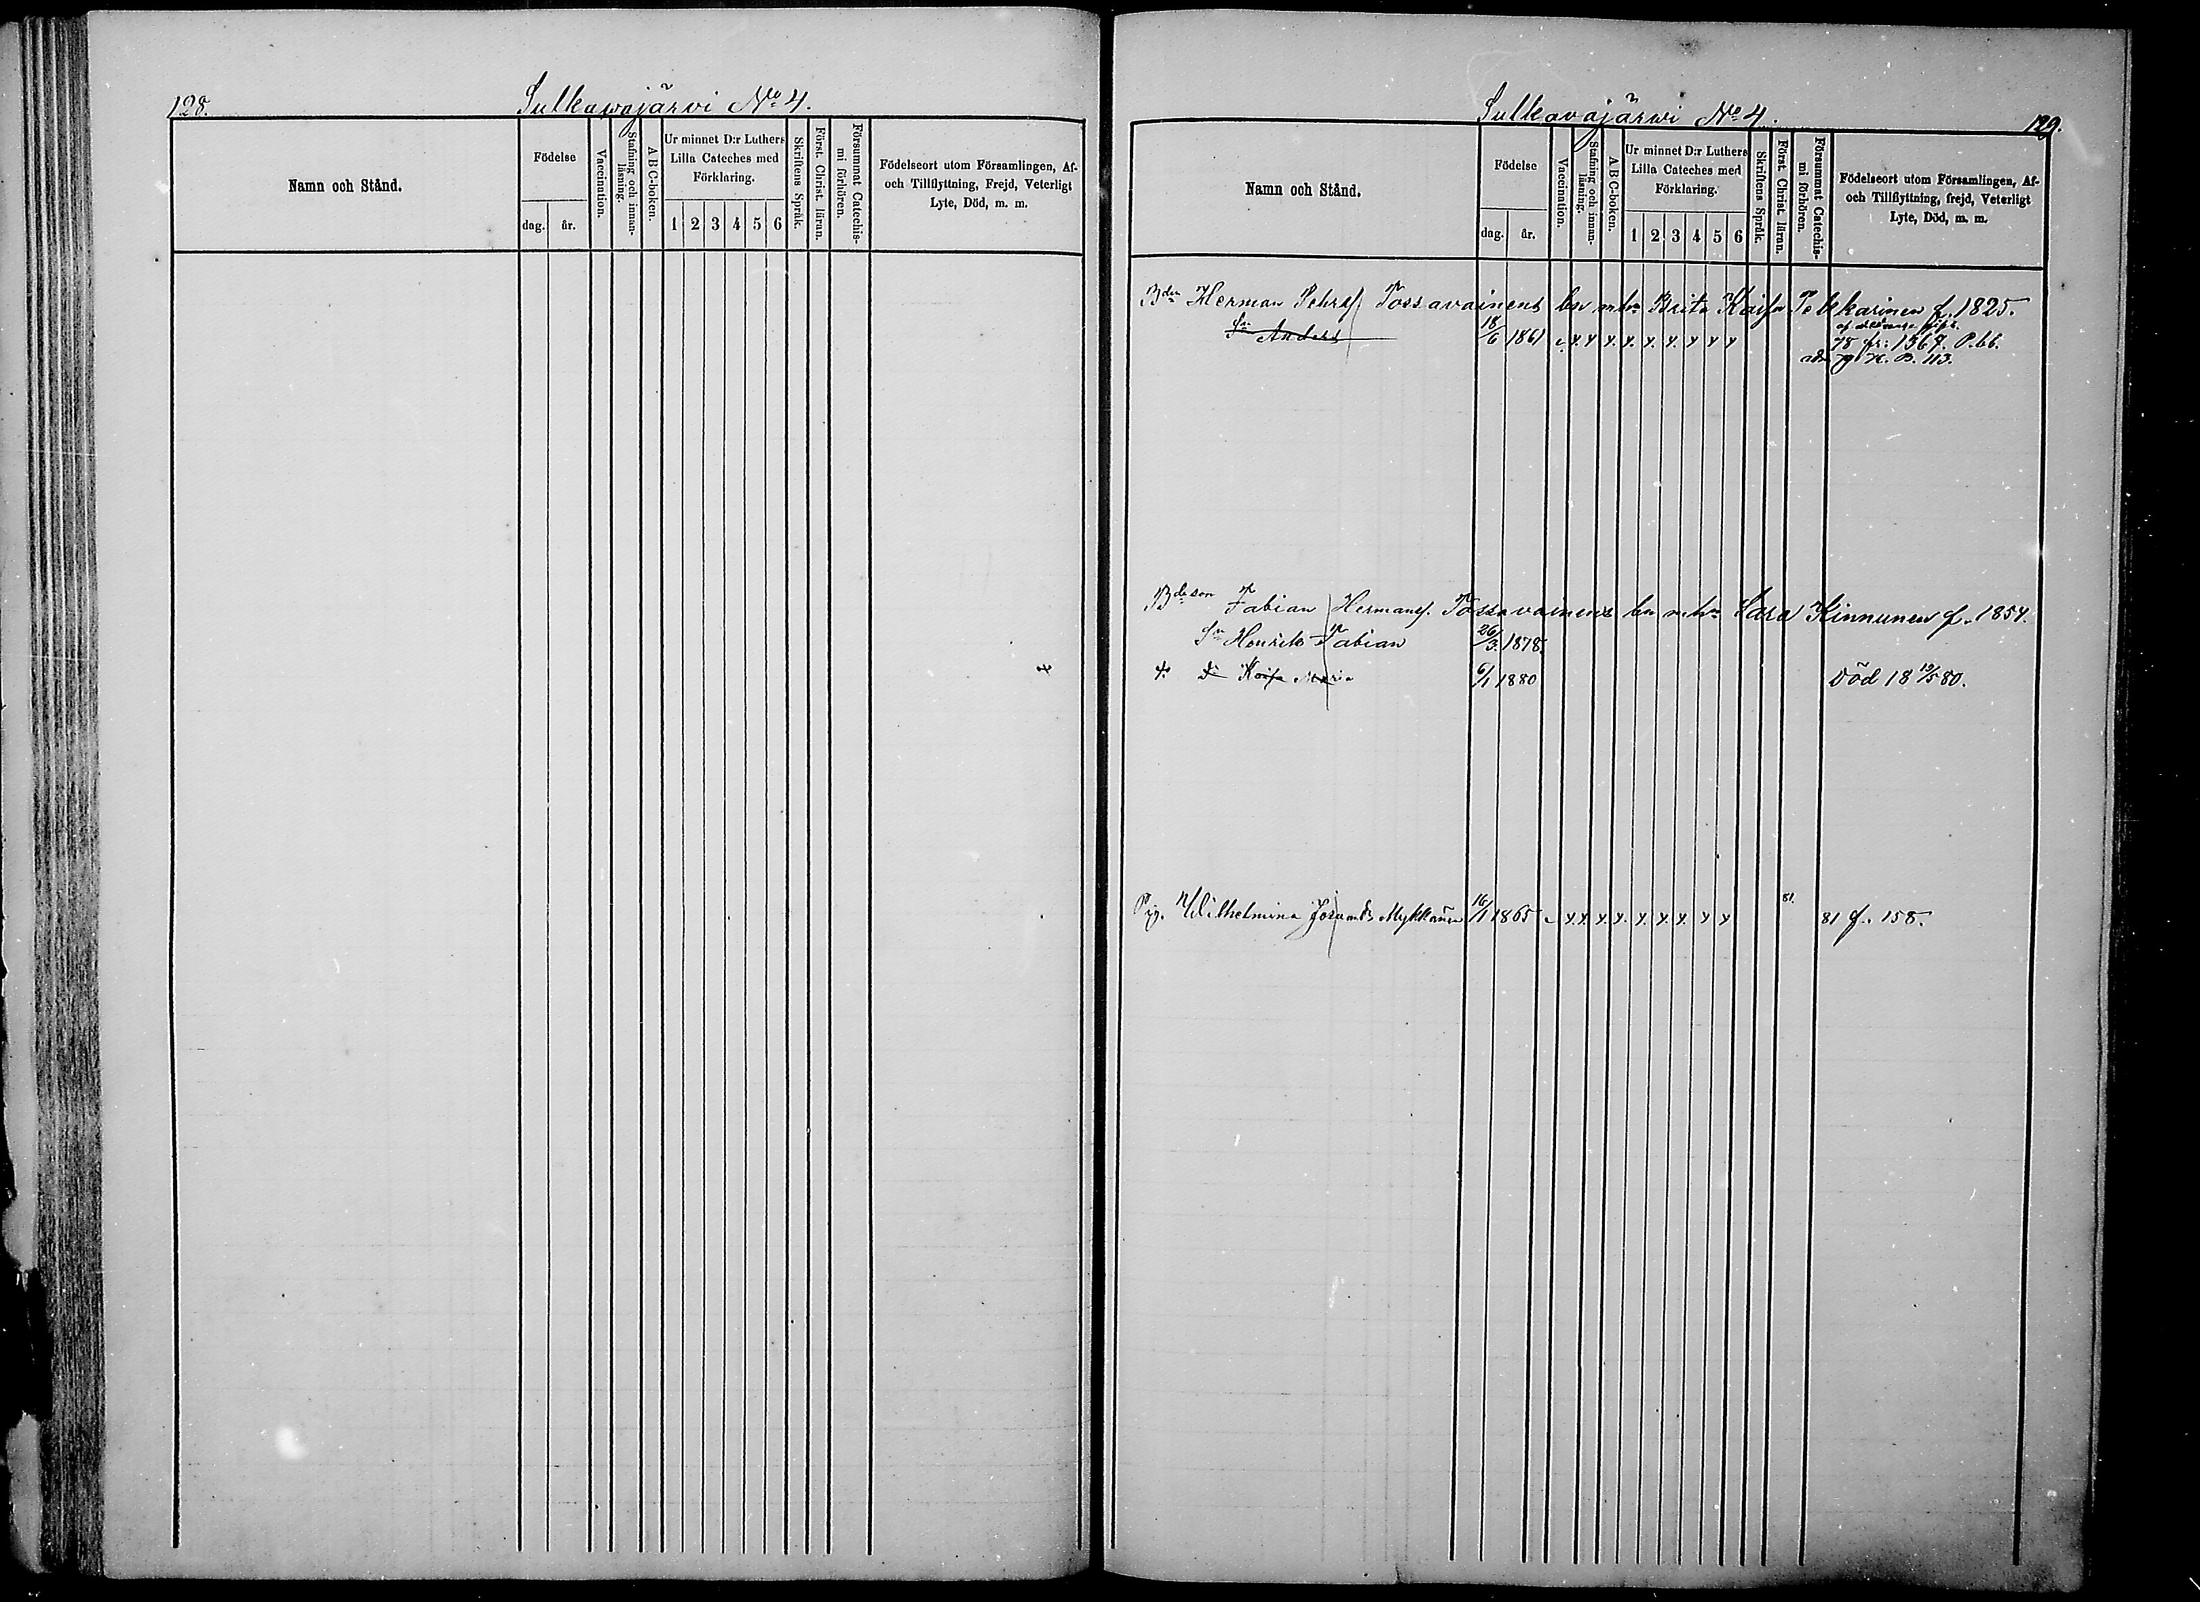 128.
Sulkawajärvi No 4.
Namn och Stånd.
Födelse
dag.
år.
Vaccination.
Stafning och innanläsning.
A B C-boken.
Ur minnet D:r Luthers
Lilla Cateches med
Förklaring.
1 2 3 4 5 6
Skriftens Språk.
Först. Christ. läran.
Försummat Catechismi förhören.
Födelseort utom Församlingen, Af-
och Tillflyttning, Frejd, Veterligt
Lyte, Död, m. m.
Sulkavajärwi No 4.
129.
Namn och Stånd.
Födelse
dag.
år.
Vaccination.
Stafning och innanläsning.
A B C-boken.
Ur minnet D:r Luthers
Lilla Cateches med
Förklaring.
1 2 3 4 5 6
Skriftens Språk.
Först. Christ. läran.
Försummat Catechismi förhören.
Födelseort utom Församlingen, Af-
och Tillflyttning, frejd, Veterligt
Lyte, Död, m. m.
Bden Herman Tossavainens bn m hu Brita Kaisa f. 1825.
Sn Anders 18/6 1861
78 fr: 1367. P. 66.
H. B. 113.
Bdeson Fabian Hermansf. Tossavainens bn m hu Sara Kinnunen f. 1854.
Sn Henrik Fabian 26/3 1878.
Dr Kaisa Maria 6/1 1880 Död 18 19/5 80.
Pig. Wilhelmina Mykkänen 16/1 1865 81. 81 f. 158.